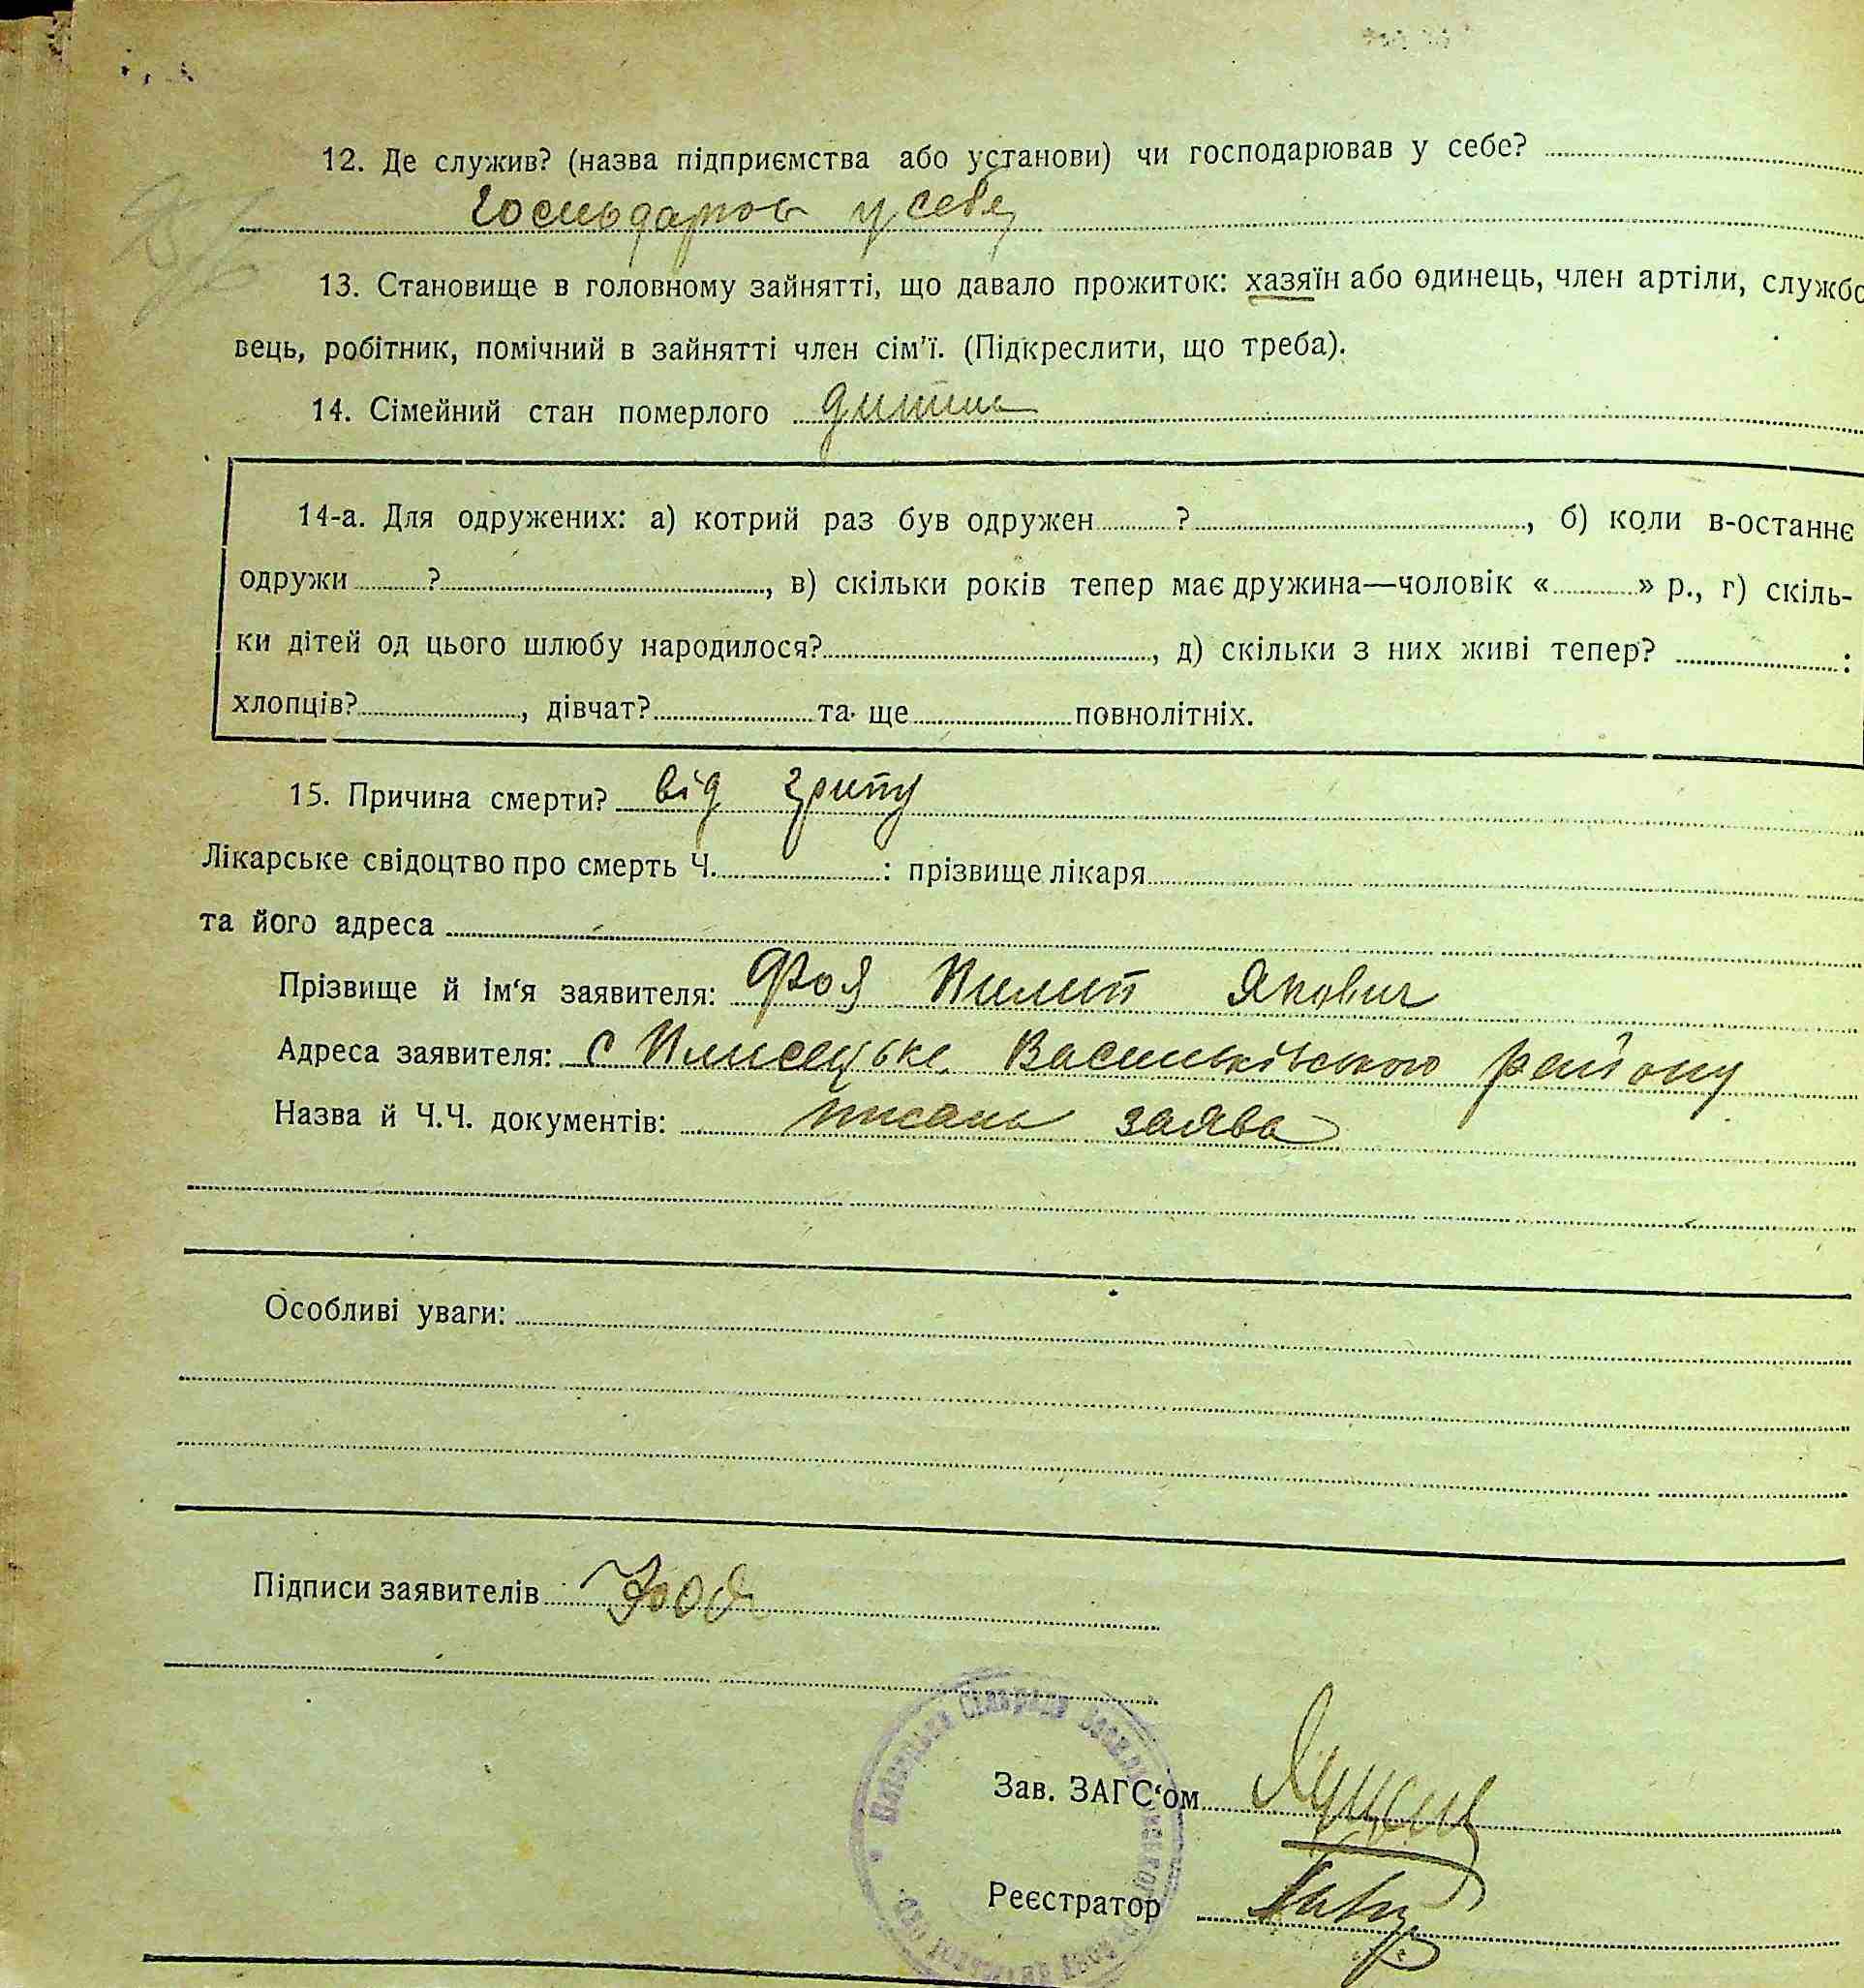 12. Де служив? (назва підприємства або установи) чи господарював у себе?
Господарює у себе
13. Становище в головному зайнятті, що давало прожиток: хазяїн або одинець, член артіли, службо
вець, робітник, помічний в зайнятті член сім'ї. (Підкреслити, що треба).
14. Сімейний стан померлого дитина
14-а. Для одружених: а) котрий раз був одружен ? , б) коли в-останнє
одружи ? , в) скільки років тепер має дружина—чоловік « » р., г) скіль-
ки дітей од цього шлюбу народилося? , д) скільки з них живі тепер? :
хлопців? , дівчат? та ще повнолітніх.
15. Причина смерти? від грипу
Лікарське свідоцтво про смерть Ч. : прізвище лікаря
та його адреса
Прізвище й ім'я заявителя: Фоя Пилип Якович
Адреса заявителя: с Плисецьке Васильківського району
Назва й Ч.Ч. документів: писана заява
Особливі уваги:
Підписи заявителів Фоя
Зав. ЗАГС'ом
Реєстратор